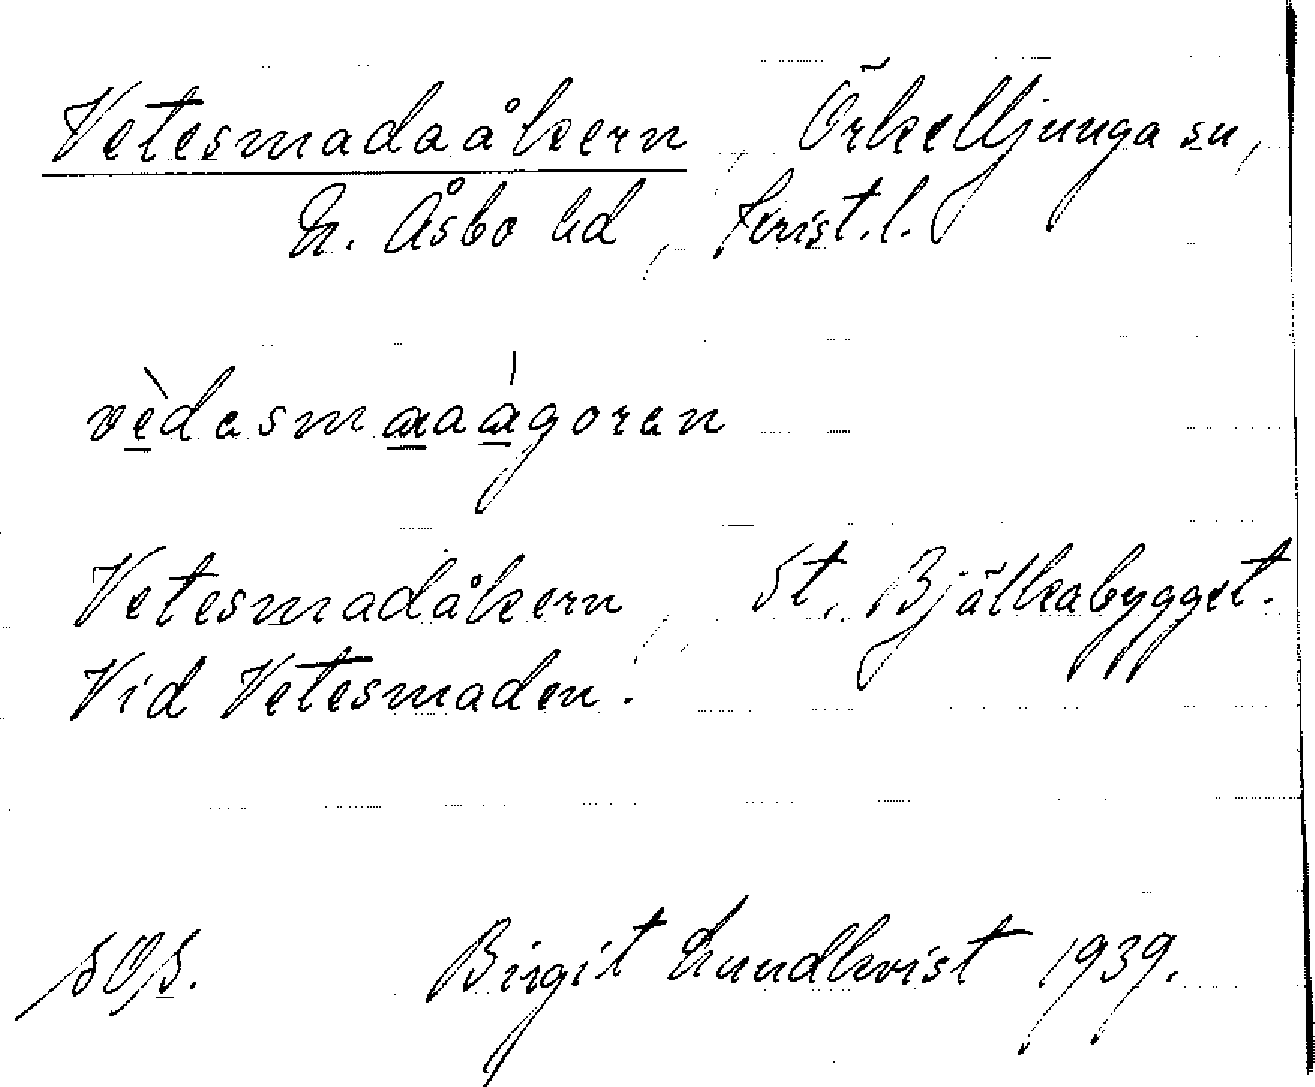 Vetesmadaåkern, Örkelljunga sn,
N. Åsbo hd, Krist. l.
vèdasmaaágoren
Vetesmadåkern, St. Bjälkabygget.
Vid Vetesmaden.
Birgit Lundkvist 1939.